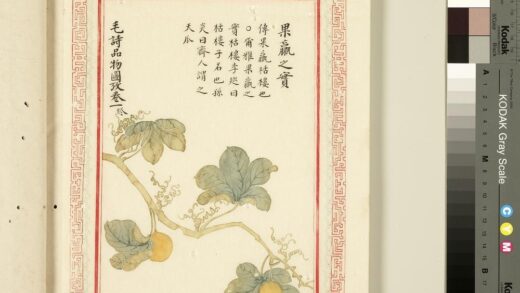 果臝之實
傳果臝栝樓也
○爾雅果臝之
實栝樓李巡曰
栝樓子名也孫
炎曰齊人謂之
天瓜
毛詩品物圖攷卷一
Kodak
KODAK Gray Scale
C Y M
A 1 2 3 4 5 6 M 8 9 10 11 12 13 14 15 B 17